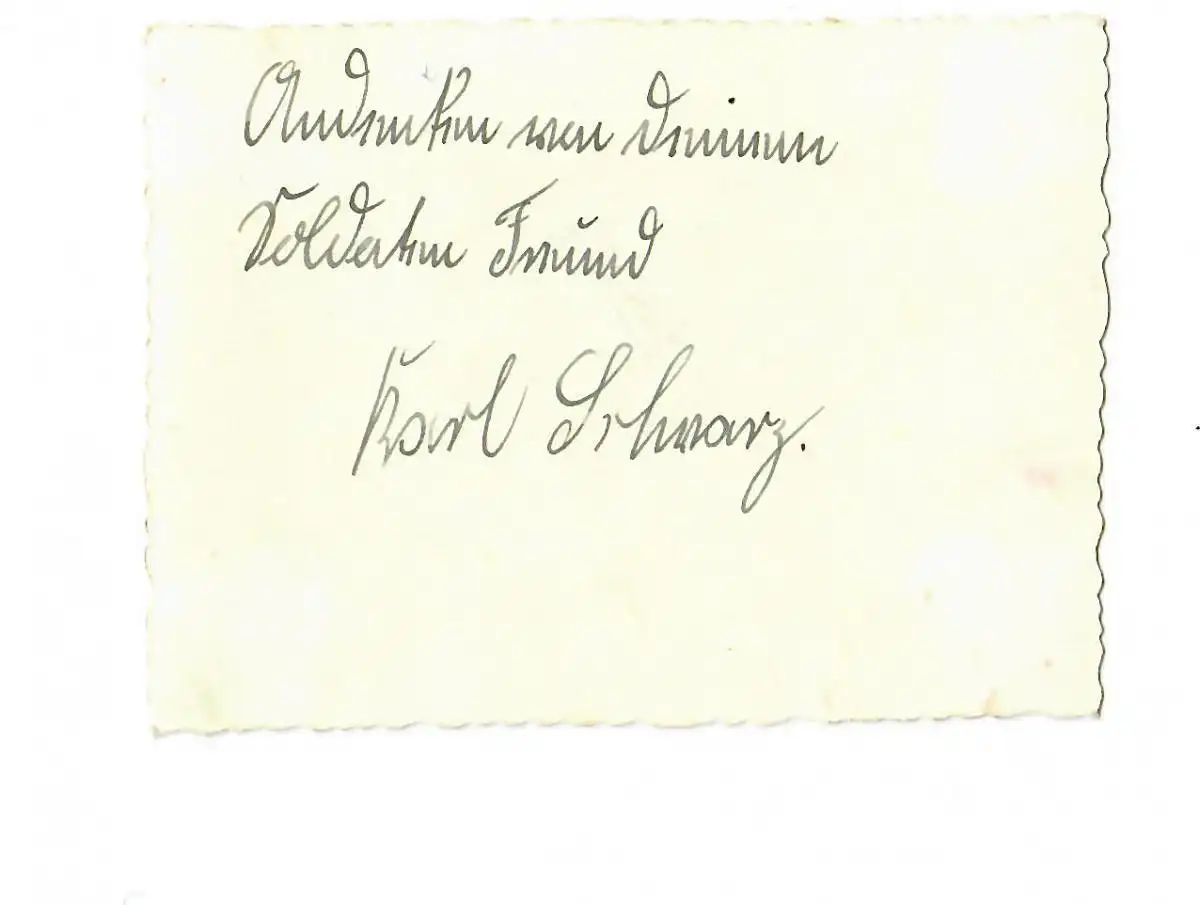 Andenken von deinem
Soldaten Freund
Karl Schwarz.